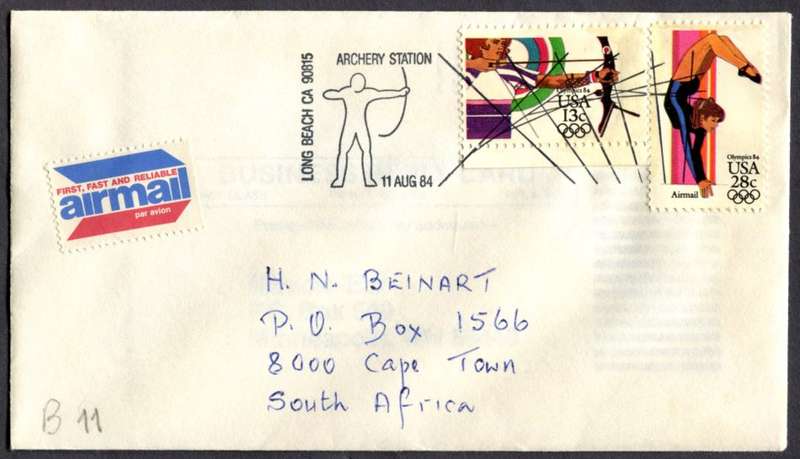 LONG BEACH CA 90815
ARCHERY STATION
11 AUG 84
Olympics 84
USA
13c
Olympics 84
USA
28c
Airmail
FIRST, FAST AND RELIABLE
airmail
par avion
H. N. BEINART
P. O. Box 1566
8000 Cape Town
South Africa
B 11